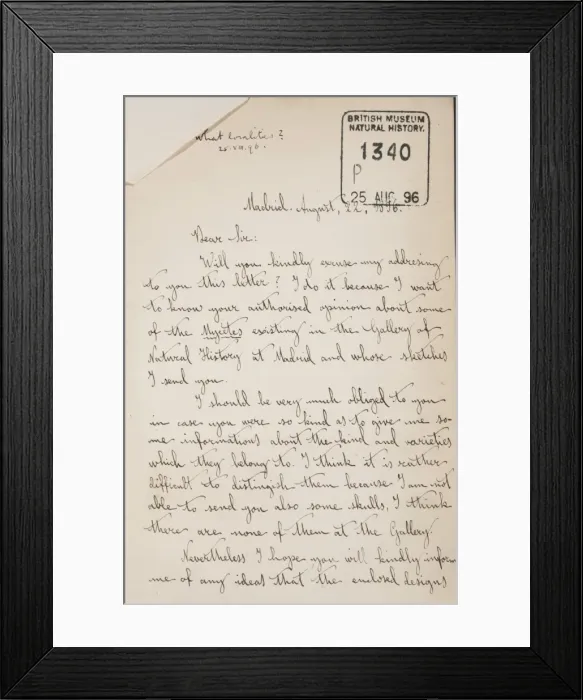 what localities?
25.VIII.96.
BRITISH MUSEUM
NATURAL HISTORY.
1340
P
25 AUG. 96
Madrid. August, 22, 1896.
Dear Sir:
Will you kindly excuse my addresing
to you this letter? I do it because I want
to know your authorised opinion about some
of the Mycetes existing in the Gallery of
Natural History at Madrid and whose sketches
I send you.
I should be very much obliged to you
in case you were so kind as to give me so-
me informations about the kind and varieties
which they belong to. I think it is rather
difficult to distinguish them because I am not
able to send you also some skulls, I think
there are none of them at the Gallery.
Nevertheless I hope you will kindly inform
me of any ideas that the enclosed designs